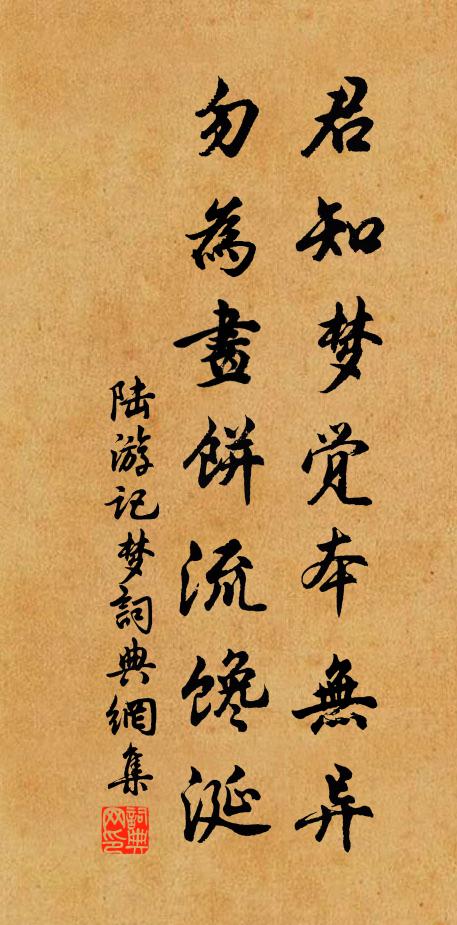 君知梦觉本無异
勿為畫餅流馋涎
陆游记梦詞典網集
詞典网印